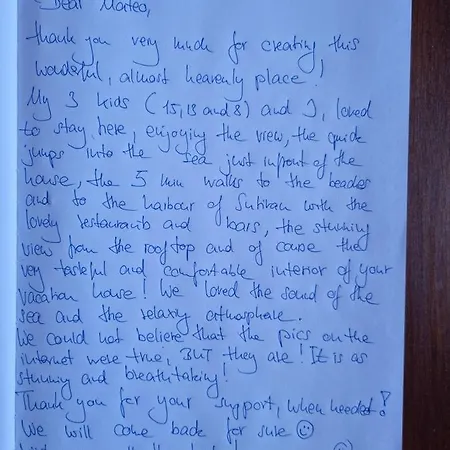 Dear Mateo,
thank you very much for creating this
wonderful, almost heavenly place!
My 3 kids (15, 13 and 8) and I, loved
to stay here, enjoying the view, the quick
jumps into the sea just infront of the
house, the 5 min walks to the beaches
and to the harbour of Sutivan with the
lovely restaurants and bars, the stunning
view from the rooftop and of course the
very tasteful and comfortable interior of your
vacation house! We loved the sound of the
sea and the relaxing athmosphere.
We could not believe that the pics on the
internet were true, BUT they are! It is as
stunning and breathtaking!
Thank you for your support, when needed!
We will come back for sure ☺